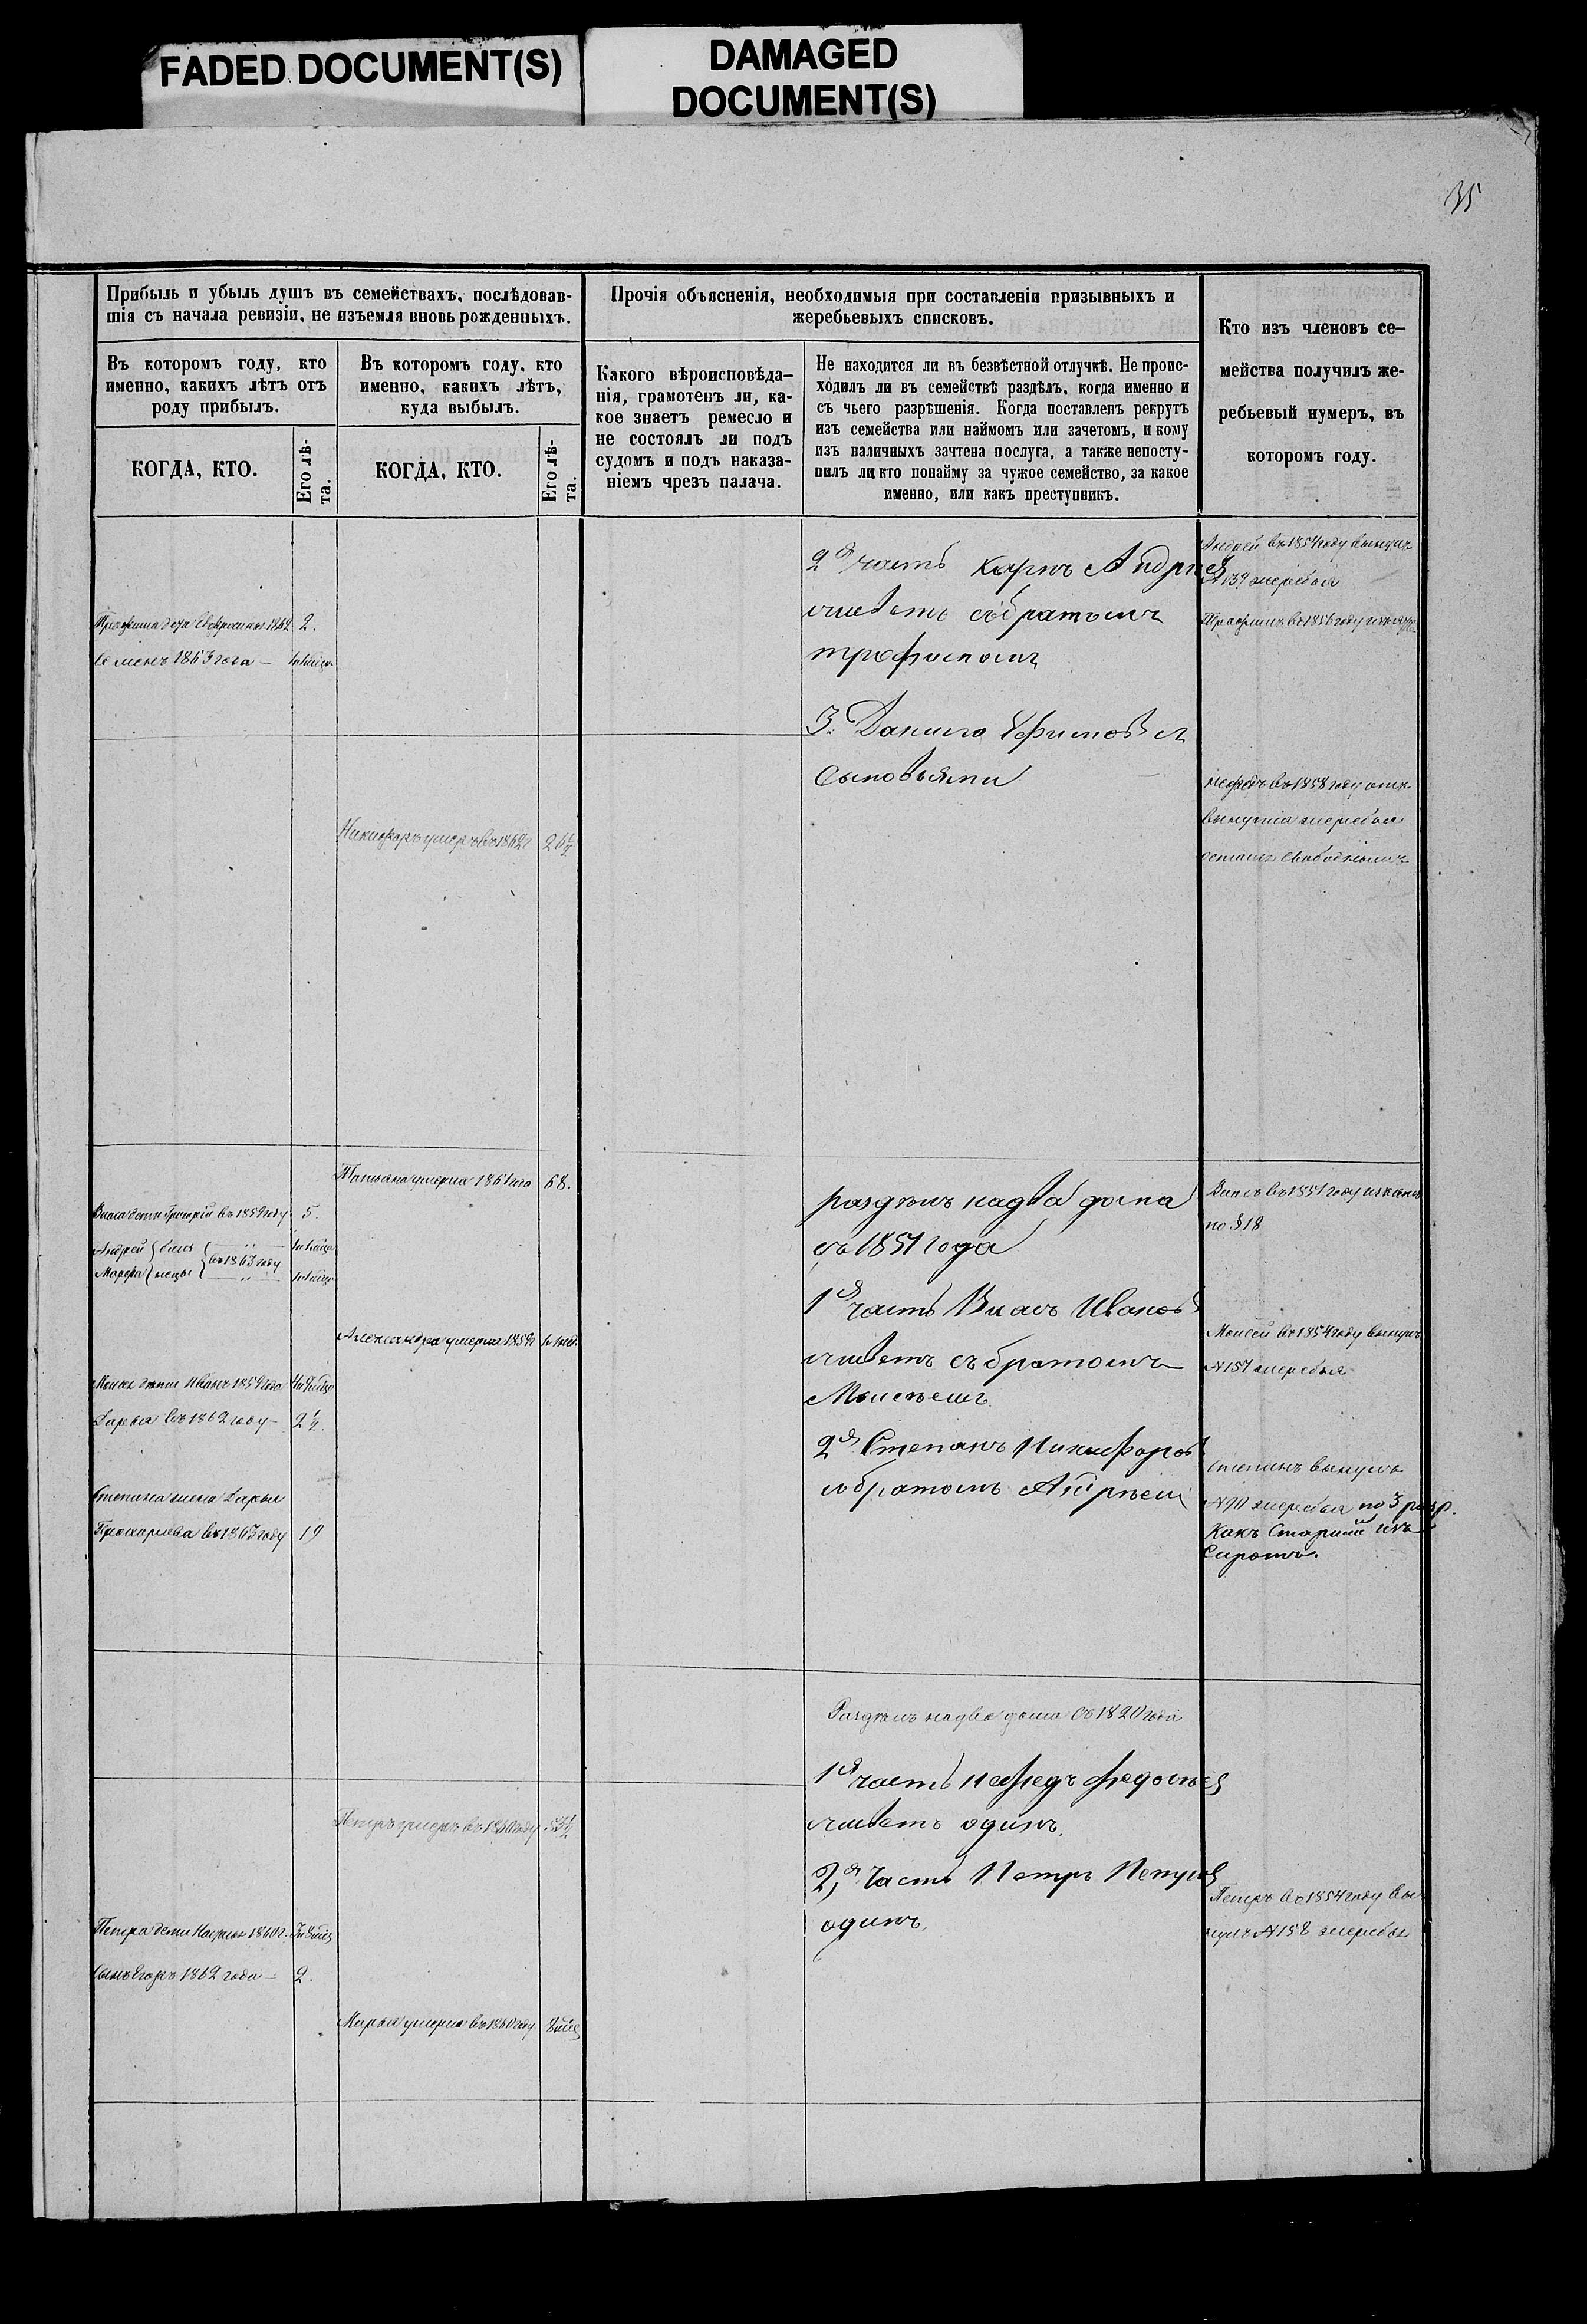 FADED DOCUMENT(S)
DAMAGED
DOCUMENT(S)
35
Прибыль и убыль душъ въ семействахъ, послѣдовав-
шія съ начала ревизіи, не изъемля вновь рожденныхъ.
Въ которомъ году, кто
именно, какихъ лѣтъ отъ
роду прибылъ.
КОГДА, КТО.
Его лѣ-
та.
Въ которомъ году, кто
именно, какихъ лѣтъ,
куда выбылъ.
КОГДА, КТО.
Его лѣ-
та.
Прочія объясненія, необходимыя при составленіи призывныхъ и
жеребьевыхъ списковъ.
Какого вѣроисповѣда-
нія, грамотенъ ли, ка-
кое знаетъ ремесло и
не состоялъ ли подъ
судомъ и подъ наказа-
ніемъ чрезъ палача.
Не находится ли въ безвѣстной отлучкѣ. Не проис-
ходилъ ли въ семействѣ раздѣлъ, когда именно и
съ чьего разрѣшенія. Когда поставленъ рекрутъ
изъ семейства или наймомъ или зачетомъ, и кому
изъ наличныхъ зачтена послуга, а также непосту-
пилъ ли кто понайму за чужое семейство, за какое
именно, или какъ преступникъ.
Кто изъ членовъ се-
мейства получилъ же-
ребьевый нумеръ, въ
которомъ году.
2я часть Карпъ Андреев
живетъ съ братомъ
трофимомъ
3. Данило Ефимовъ съ
Сыновьями
Андрей въ 1854 году вынулъ
№ 139 жеребья
Трофимъ въ 1856 году
нефедъ въ 1858 году
вынутія жеребья
остался свободнымъ
1862 2.
Семенъ 1863 года
Никифоръ умеръ въ 1862 26½
Татьяна умерла 1861 года 68.
Власа дети Григорій въ 1859 году 5.
Андрей близ
Марфа нецы въ 1863 году
Александра умерла 1859
Иванъ 1859 года
Дарья въ 1862 году 2½.
Степана жена Дарья
въ 1863 году 19
раздѣлъ на два дома
съ 1851 года
1я часть Власъ Ивановъ
живетъ съ братомъ
Моисеемъ
2я Степанъ Никифоровъ
собратомъ Андреем
Власъ въ 1851 году
по § 18
Моисей въ 1854 году вынулъ
№ 157 жеребья
Степанъ вынулъ
№ 90 жеребья по 3 разр.
Какъ Старшій изъ
Сиротъ.
Раздѣлъ на два дома съ 1820 года
1я часть нефедъ
живетъ одинъ.
2,я Часть Петръ Петров
одинъ.
Петръ умеръ въ 1860 году 53½
Петра дети 1860 г.
Сынъ Егоръ 1862 года 2.
Марья умерла въ 1860 году
Петръ въ 1854 году вы
нулъ № 158 жеребья